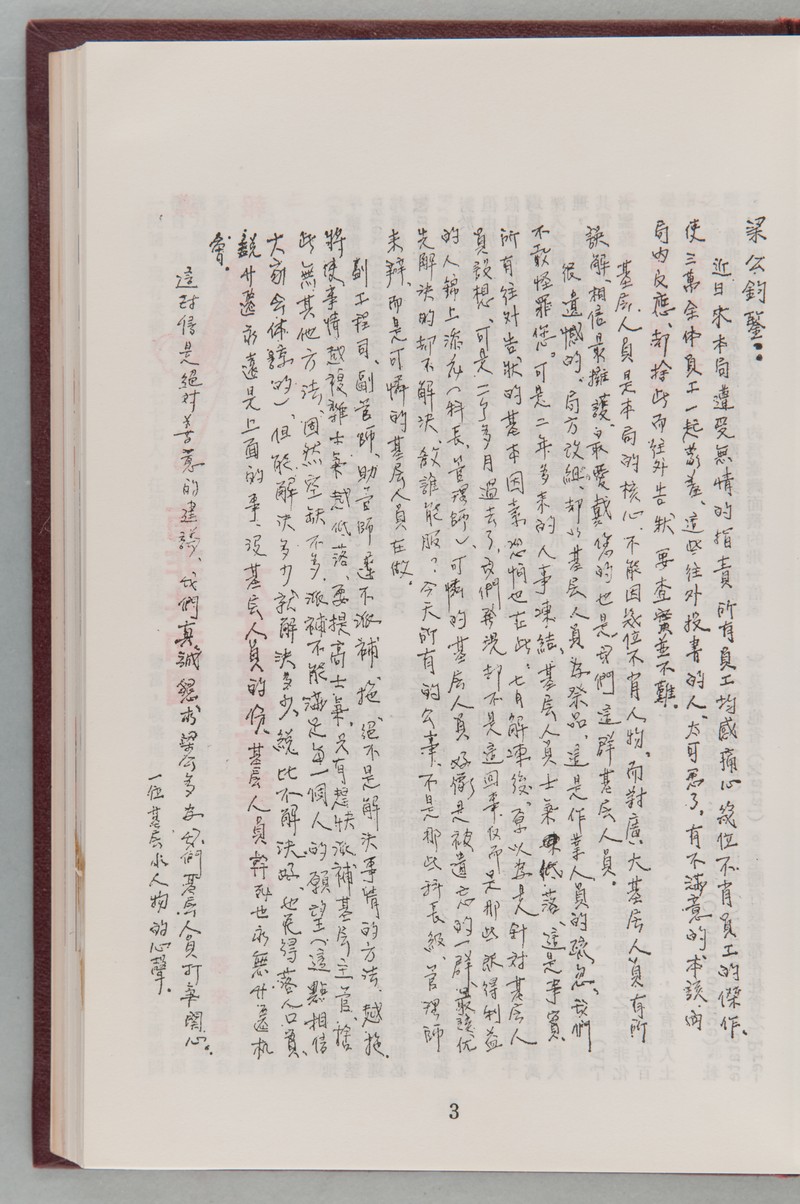 梁公鈞鑒：
近日來本局遭受無情的指責所有員工均感痛心幾位不肖員工的傑作、
使三萬全体員工一起蒙羞、這些往外投書的人、太可惡了。有不滿意的本該向
局內反應、却捨此而往外告狀要查實並不難。
基层人員是本局的核心、不能因幾位不肖人物、而對廣大基层人員有所
誤解、相信最擁護、最愛戴您的也是我們這群基层人員。
很遺憾的。局方改組、却以基层人員為祭品、這是作業人員的疏忽、我們
不敢怪罪您。可是二年多來的人事凍結、基层人員士氣低落、這是事實
所有往外告狀的基本因素恐怕也在此、七月解凍後、原以為是針對基层人
員設想、可是二个多月過去了、我們發現却不是這回事、仅而是那些既得利益
的人錦上添花（科長、管理師）、可憐的基层人員好像是被遺忘的一群、最該优
先解決的却不解決、敘誰能服？今天所有的公事、不是那些科長級、管理師
來辦、而是可憐的基层人員在做。
副工程司、副管師、助管師遲不派補、拖、絕不是解決事情的方法、越拖、
將使事情越複雜士氣越低落、要提高士氣、只有趕快派補基层主管、捨
此無其他方法、固然空缺不多、派補不能滿足每一個人的願望（這點相信
大家會体諒的）、但能解決多少就解決多少、總比不解決好、也免得落人口實、
說升遷永遠是上面的事、沒基层人員的份、基层人員幹到世永無升遷机
會。
這封信是絕對善意的建議、我們真誠懇求梁公多為我們基层人員打氣関心。
一位基层小人物的心聲。
3